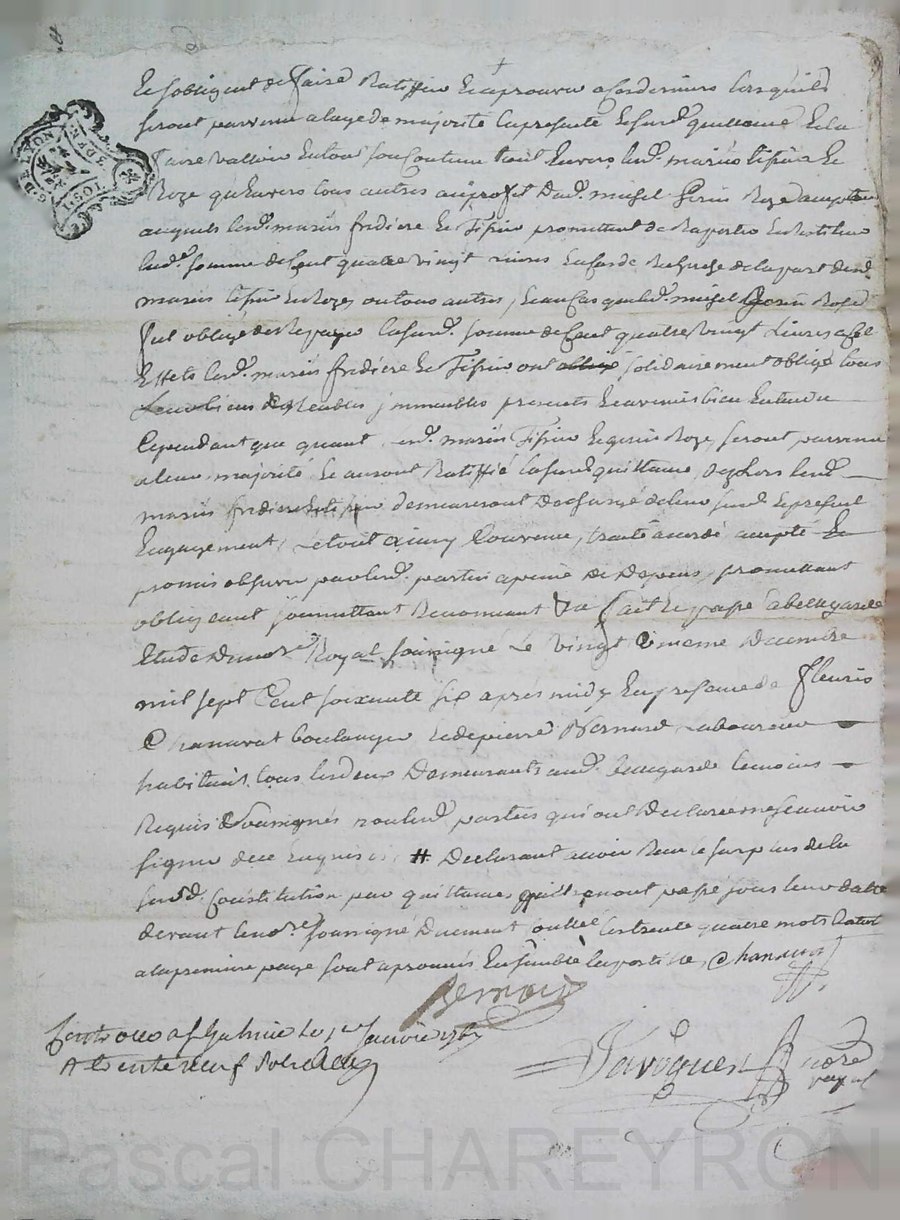 et s'obligent de faire Ratiffier et aprouver a ces derniers lors quils
seront parvenu a lage de majorité la presente et susd. quittance et la
faire valloir en tout son contenu tant envers led. mariés tissier et
Roze qu'envers tous autres au profit dud. michel Roze
auquel lesd. mariés fridiere et Tissier promettent de Raporter
lad. somme de Cent quatre vingt Livres en cas de de la part desd.
mariés tissier et Roze, ou tous autres, et en cas que led. michel Roze
fut obligé de Repayer la susd. somme de Cent quatre vingt Livres a cet
Effet lesd. mariés fridiere et Tissier ont solidairement obligé tous
Leurs biens meubles immeubles presents et avenir bien entendu
Cependant que quant lesd. mariés Tissier et Roze, seront parvenu
a leur majorité et auront Ratiffié la susd. quittance, deslors lesd.
mariés fridiere et tissier demeureront Dechargé de leur susd. et present
Engagement, Le tout ainsy Convenu, traité acordé, accepté Et
promis observer par lesd. parties a peine de Depens, promettant
obligeant soumettant Renonceant &ca fait et passé a bellegarde
Etude du no.re Royal soussigné Le vingt Decembre
mil sept Cent soixante six après midy En presence de fleuris
Chanavat boulanger et de pierre Bernard Laboureur
habitants tous les deux Demeurants aud. bellegarde temoins
Requis & soussignés non lesd. parties qui ont Declaré ne sçavoir
signer de ce Enquis # Declarant avoir Recu le surplus de la
susd. Constitution par quittances quils en ont passé sous leur datte
devant le no.re soussigné Duement les trente quatre mots
a la premiere page sont aprouvés Ensemble Chanavat
Bernard
Controllé a St Galmier le 1er Janvier 1767
A trente neuf sols
Javogues no.re
royal
G. DE LYON
Pascal CHAREYRON